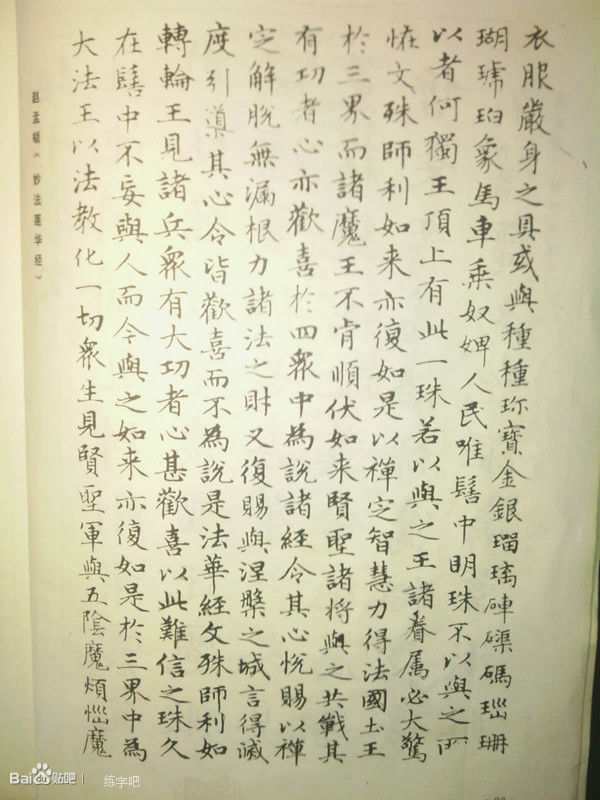 衣服嚴身之具或與種種珎寶金銀瑠璃硨磲碼瑙珊
瑚琥珀象馬車乘奴婢人民唯髻中明珠不以與之所
以者何獨王頂上有此一珠若以與之王諸眷屬必大驚
恠文殊師利如来亦復如是以禪定智慧力得法國土王
於三界而諸魔王不肯順伏如来賢聖諸將與之共戰其
有功者心亦歡喜於四衆中為說諸經令其心悅賜以禪
定解脫無漏根力諸法之財又復賜與涅槃之城言得滅
度引導其心令皆歡喜而不為說是法華經文殊師利如
轉輪王見諸兵衆有大功者心甚歡喜以此難信之珠久
在髻中不妄與人而今與之如来亦復如是於三界中為
大法王以法教化一切衆生見賢聖軍與五陰魔煩惱魔
赵孟頫《妙法莲华经》
Bai贴吧 | 练字吧